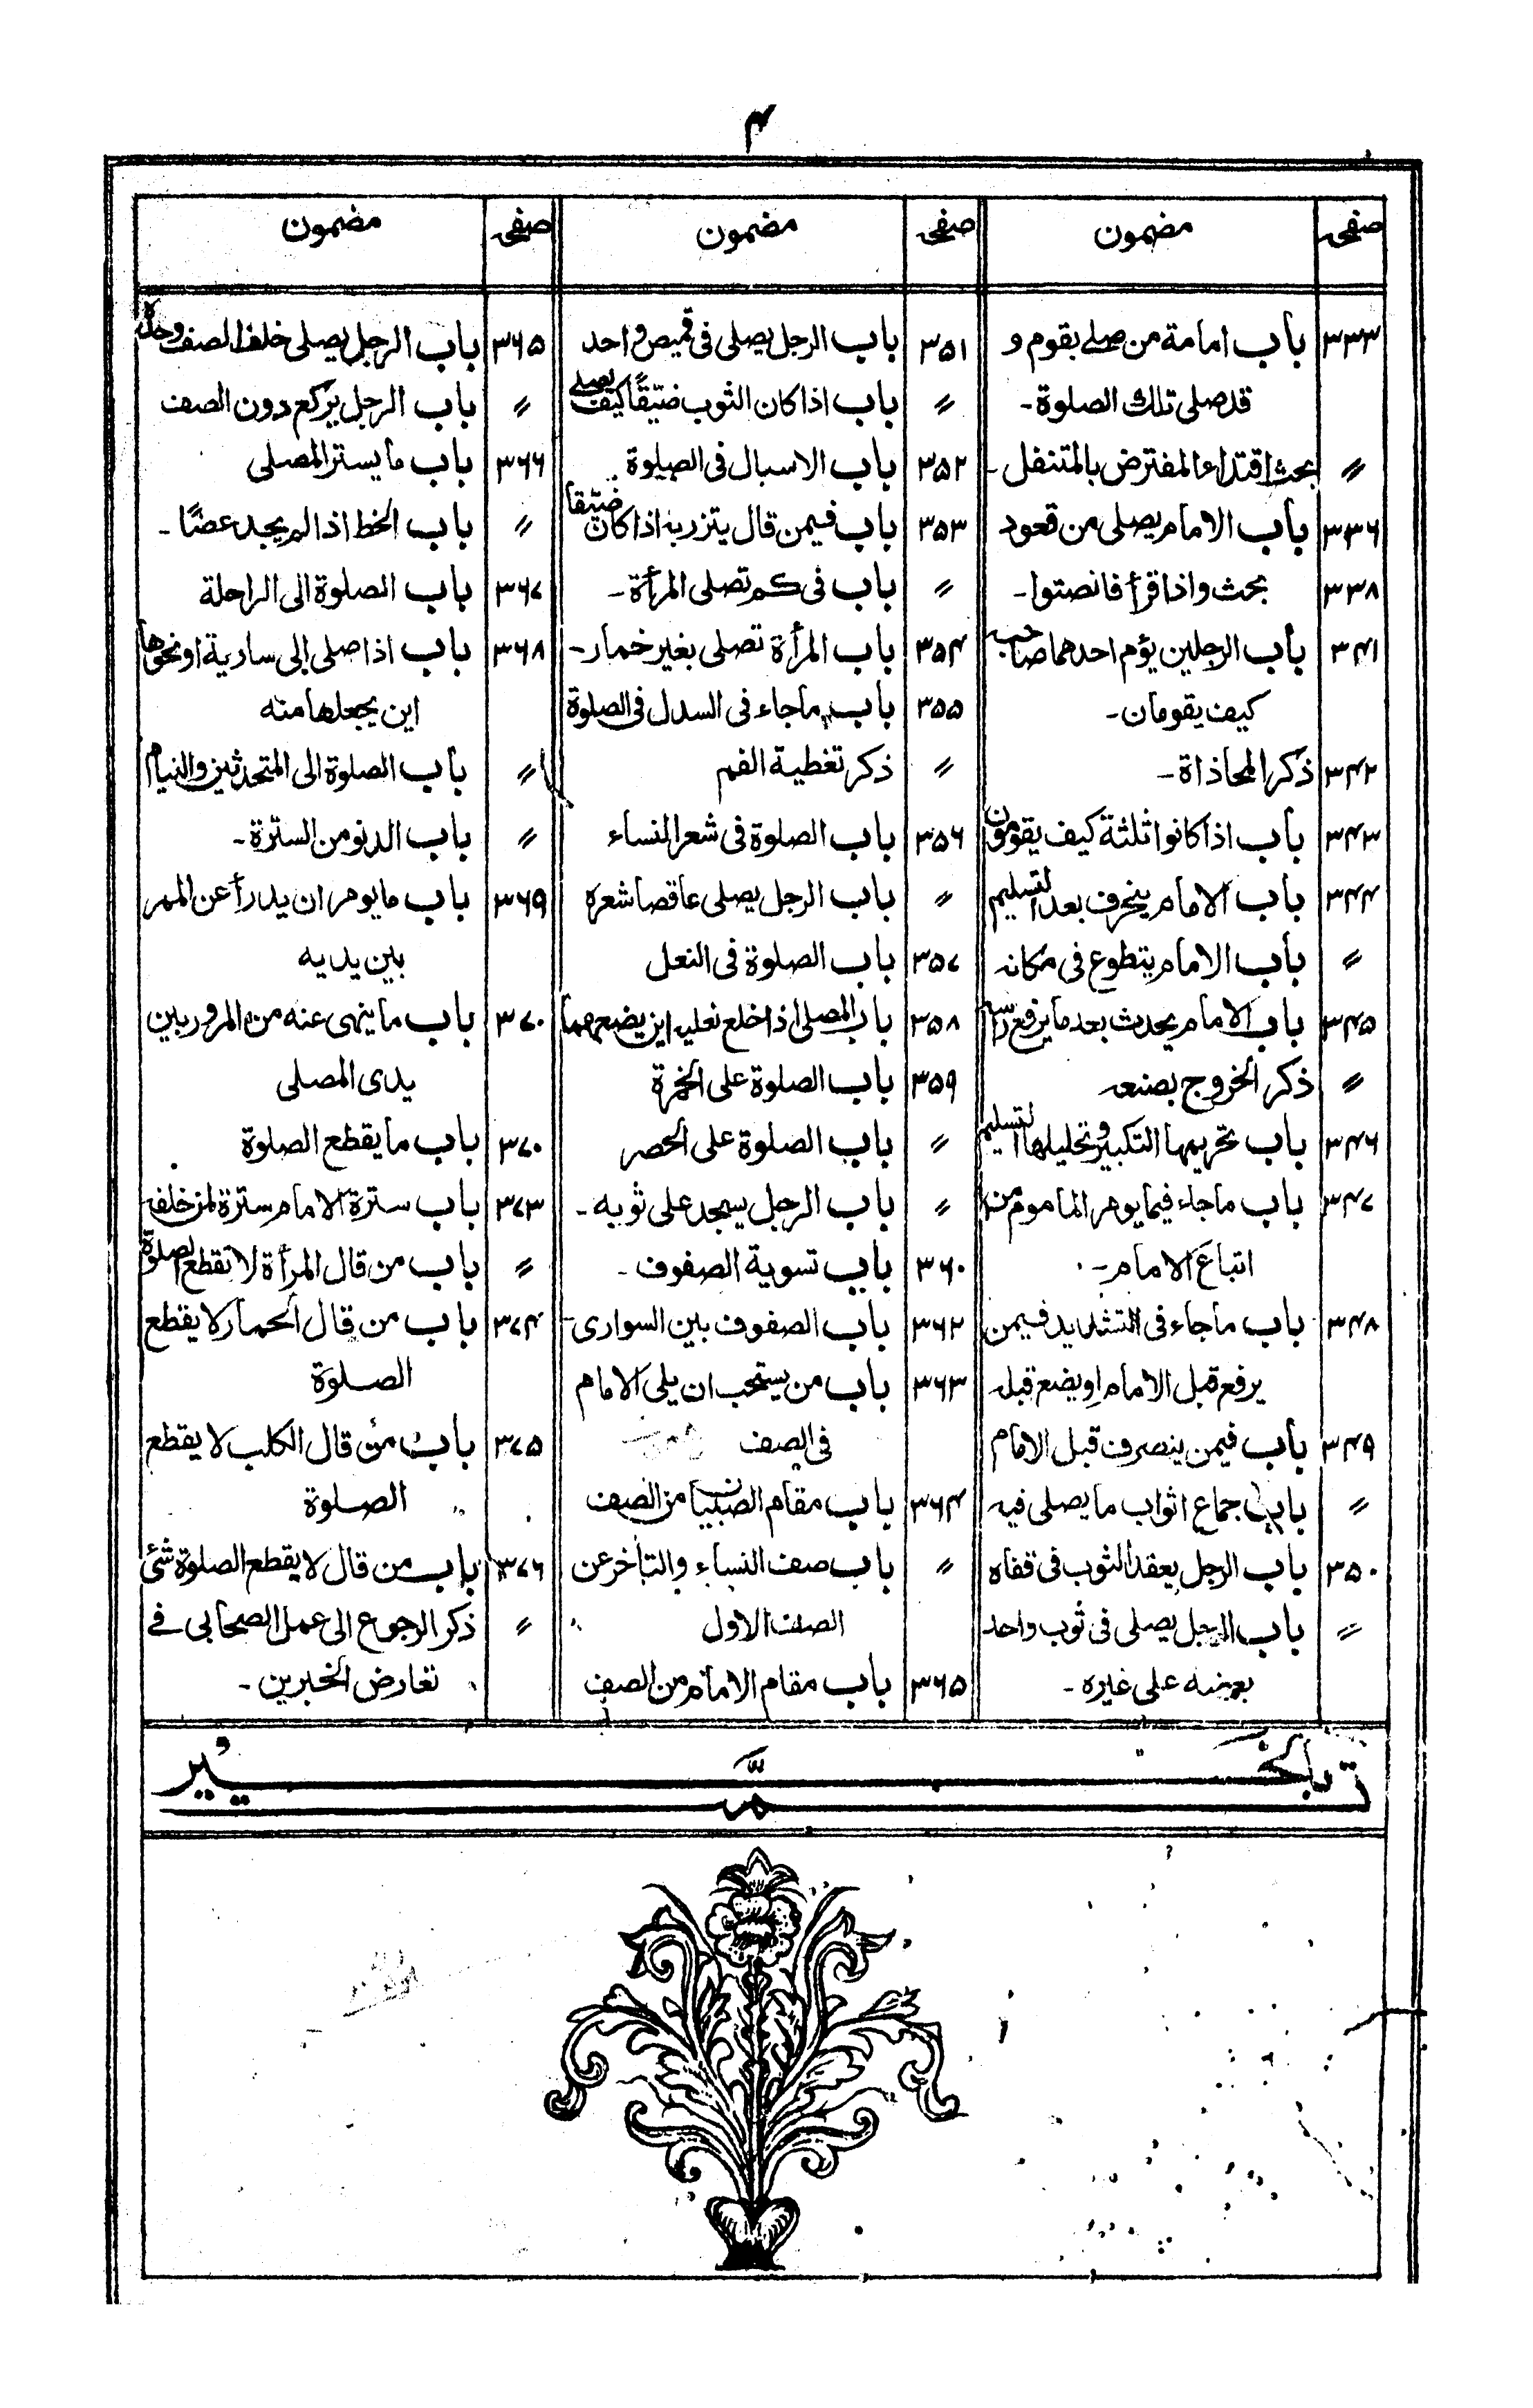 ۴
صفحہ مضمون
۳۳۳ باب امامة من صلى بقوم و
قد صلى تلك الصلوة۔
〃 بحث اقتداء المفترض بالمتنفل۔
۳۳۶ باب الامام يصلى من قعود
۳۳۸ بحث واذا قرأ فانصتوا۔
۳۴۱ باب الرجلين يؤم احدهما صاحبه
كيف يقومان۔
۳۴۲ ذكر المحاذاة۔
۳۴۳ باب اذا كانوا ثلثة كيف يقومون
۳۴۴ باب الامام ينحرف بعد التسليم
〃 باب الامام يتطوع فى مكانه
۳۴۵ باب الامام يحدث بعد ما يرفع راسه
〃 ذكر الخروج بصنعه
۳۴۶ باب تحريمها التكبير وتحليلها التسليم
۳۴۷ باب ماجاء فيما يومر الماموم من
اتباع الامام۔
۳۴۸ باب ماجاء فى التشديد فيمن
يرفع قبل الامام او يضع قبله
۳۴۹ باب فيمن ينصرف قبل الامام
〃 باب جماع اثواب ما يصلى فيه
۳۵۰ باب الرجل يعقد الثوب فى قفاه
〃 باب الرجل يصلى فى ثوب واحد
بعضه على غيره۔
صفحہ مضمون
۳۵۱ باب الرجل يصلى فى قميص واحد
〃 باب اذا كان الثوب ضيقًا كيف يصلى
۳۵۲ باب الاسبال فى الصلوة
۳۵۳ باب فيمن قال يتزر به اذا كان ضيقا
〃 باب فى كم تصلى المرأة۔
۳۵۴ باب المرأة تصلى بغير خمار۔
۳۵۵ باب ماجاء فى السدل فى الصلوة
〃 ذكر تغطية الفم
۳۵۶ باب الصلوة فى شعر النساء
〃 باب الرجل يصلى عاقصا شعره
۳۵۷ باب الصلوة فى النعل
۳۵۸ باب المصلى اذا خلع نعليه اين يضعهما
۳۵۹ باب الصلوة على الخمرة
〃 باب الصلوة على الحصر
〃 باب الرجل يسجد على ثوبه۔
۳۶۰ باب تسوية الصفوف۔
۳۶۲ باب الصفوف بين السوارى۔
۳۶۳ باب من يستحب ان يلى الامام
فى الصف
۳۶۴ باب مقام الصبيان من الصف
〃 باب صف النساء والتأخر عن
الصف الاول
۳۶۵ باب مقام الامام من الصف
صفحہ مضمون
۳۶۵ باب الرجل يصلى خلف الصف وحده
〃 باب الرجل يركع دون الصف
۳۶۶ باب ما يستر المصلى
〃 باب الخط اذا لم يجد عصًا۔
۳۶۷ باب الصلوة الى الراحلة
۳۶۸ باب اذا صلى الى سارية او نحوها
اين يجعلها منه
〃 باب الصلوة الى المتحدثين والنيام
〃 باب الدنو من السترة۔
۳۶۹ باب ما يومر ان يدرأ عن الممر
بين يديه
۳۷۰ باب ما ينهى عنه من المرور بين
يدى المصلى
۳۷۰ باب ما يقطع الصلوة
۳۷۳ باب سترة الامام سترة لمن خلفه
〃 باب من قال المرأة لا تقطع الصلوة
۳۷۴ باب من قال الحمار لا يقطع
الصلوة
۳۷۵ باب من قال الكلب لا يقطع
الصلوة
۳۷۶ باب من قال لا يقطع الصلوة شئ
〃 ذكر الرجوع الى عمل الصحابى فے
تعارض الخبرين۔
تمّت بالخير